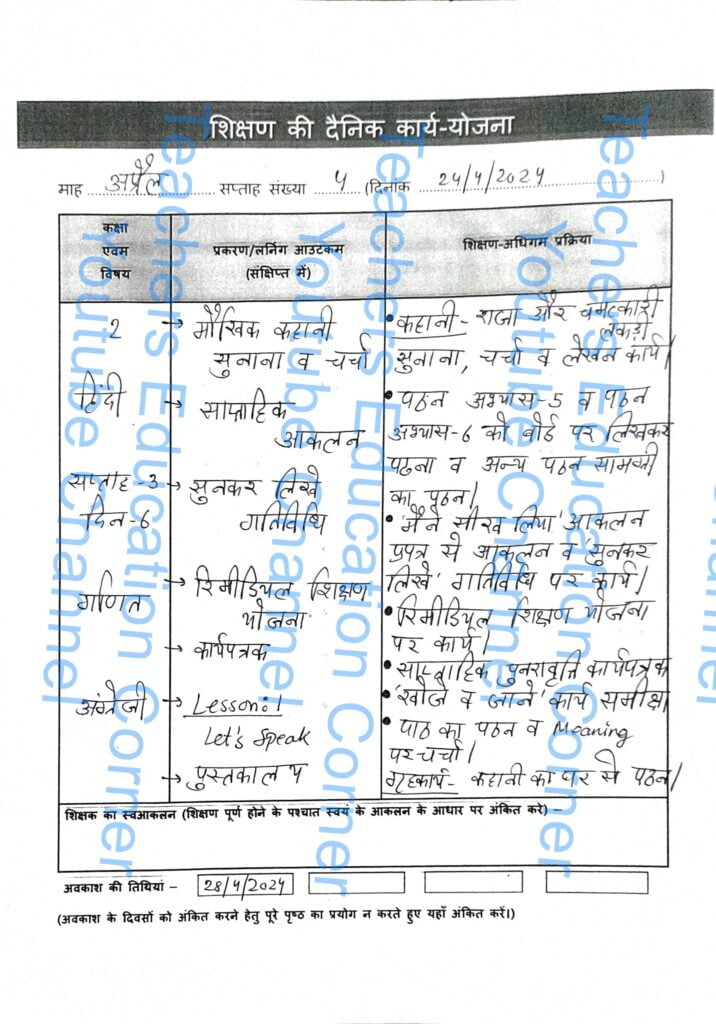 शिक्षण की दैनिक कार्य-योजना
माह अप्रैल सप्ताह संख्या 4 (दिनांक 24/4/2024)
कक्षा एवम विषय
प्रकरण/लर्निंग आउटकम (संक्षिप्त में)
शिक्षण-अधिगम प्रक्रिया
2
हिंदी
सप्ताह-3
दिन-6
गणित
अंग्रेजी
→ मौखिक कहानी
सुनाना व चर्चा
→ साप्ताहिक
आकलन
→ सुनकर लिखे
गतिविधि
→ रिमीडियल शिक्षण
योजना
→ कार्यपत्रक
→ Lesson:1
Let's Speak
→ पुस्तकालय
• कहानी- राजा और चमत्कारी
लकड़ी
सुनाना, चर्चा व लेखन कार्य।
• पठन अभ्यास-5 व पठन
अभ्यास-6 को बोर्ड पर लिखकर
पढ़ना व अन्य पठन सामग्री
का पठन।
• 'मैंने सीख लिया' आकलन
प्रपत्र से आकलन व 'सुनकर
लिखे' गतिविधि पर कार्य।
• रिमीडियल शिक्षण योजना
पर कार्य।
• साप्ताहिक पुनरावृत्ति कार्यपत्रक
• 'खोजे व जाने' कार्य समीक्षा
• पाठ का पठन व Meaning
पर चर्चा।
गृहकार्य- कहानी का घर से पठन।
शिक्षक का स्वआकलन (शिक्षण पूर्ण होने के पश्चात स्वयं के आकलन के आधार पर अंकित करे) –
अवकाश की तिथियां – 28/4/2024
(अवकाश के दिवसों को अंकित करने हेतु पूरे पृष्ठ का प्रयोग न करते हुए यहाँ अंकित करें।)
Teachers Education Corner
Youtube Channel
Teachers Education Corner
Youtube Channel
Teachers Education Corner
Youtube Channel